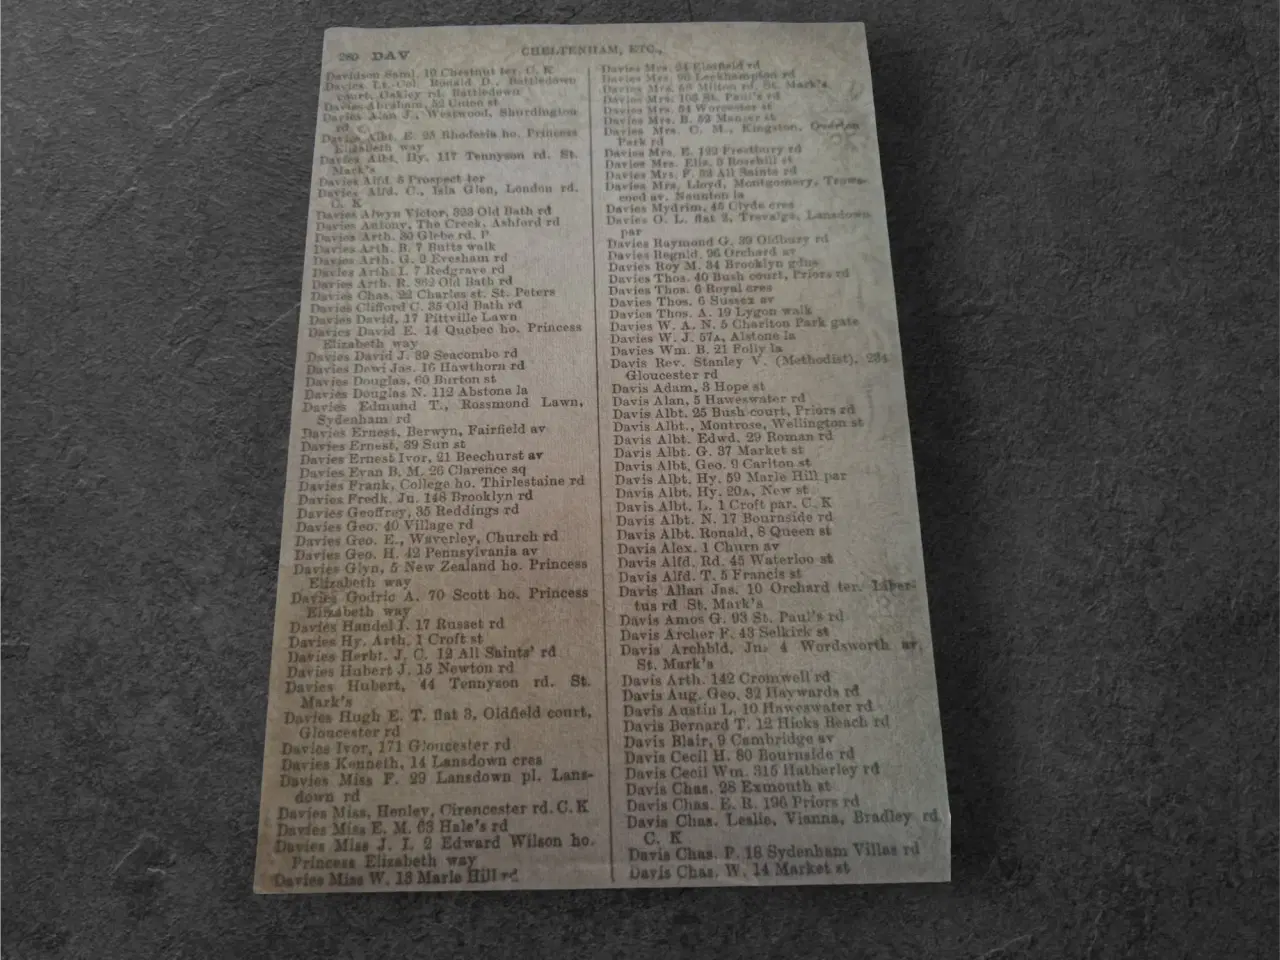 280 DAV
CHELTENHAM, ETC.,
Davidson Saml. 19 Chestnut ter. C. K
Davies Lt.-Col. Ronald D., Battledown
court, Oakley rd. Battledown
Davies Abraham, 52 Union st
Davies Alan J., Westwood, Shurdington
rd
Davies Albt. E. 25 Rhodesia ho. Princess
Elizabeth way
Davies Albt. Hy. 117 Tennyson rd. St.
Mark's
Davies Alfd. 5 Prospect ter
Davies Alfd. C., Isla Glen, London rd.
C. K
Davies Alwyn Victor, 323 Old Bath rd
Davies Antony, The Creek, Ashford rd
Davies Arth. 30 Glebe rd. P
Davies Arth. B. 7 Butts walk
Davies Arth. G. 9 Evesham rd
Davies Arth. I. 7 Redgrave rd
Davies Arth. R. 362 Old Bath rd
Davies Chas. 22 Charles st. St. Peters
Davies Clifford C. 35 Old Bath rd
Davies David, 17 Pittville Lawn
Davies David E. 14 Quebec ho. Princess
Elizabeth way
Davies David J. 39 Seacombe rd
Davies Dewi Jas. 16 Hawthorn rd
Davies Douglas, 60 Burton st
Davies Douglas N. 112 Abstone la
Davies Edmund T., Rossmond Lawn,
Sydenham rd
Davies Ernest, Berwyn, Fairfield av
Davies Ernest, 39 Sun st
Davies Ernest Ivor, 21 Beechurst av
Davies Evan B. M. 26 Clarence sq
Davies Frank, College ho. Thirlestaine rd
Davies Fredk. Jn. 148 Brooklyn rd
Davies Geoffrey, 35 Reddings rd
Davies Geo. 40 Village rd
Davies Geo. E., Waverley, Church rd
Davies Geo. H. 42 Pennsylvania av
Davies Glyn, 5 New Zealand ho. Princess
Elizabeth way
Davies Godric A. 70 Scott ho. Princess
Elizabeth way
Davies Handel I. 17 Russet rd
Davies Hy. Arth. 1 Croft st
Davies Herbt. J. C. 12 All Saints' rd
Davies Hubert J. 15 Newton rd
Davies Hubert, 44 Tennyson rd. St.
Mark's
Davies Hugh E. T. flat 3, Oldfield court,
Gloucester rd
Davies Ivor, 171 Gloucester rd
Davies Kenneth, 14 Lansdown cres
Davies Miss F. 29 Lansdown pl. Lans-
down rd
Davies Miss, Henley, Cirencester rd. C. K
Davies Miss E. M. 63 Hale's rd
Davies Miss J. I. 2 Edward Wilson ho.
Princess Elizabeth way
Davies Miss W. 13 Marle Hill rd
Davies Mrs. 24 Elmfield rd
Davies Mrs. 90 Leckhampton rd
Davies Mrs. 68 Milton rd. St. Mark's
Davies Mrs. 105 St. Paul's rd
Davies Mrs. 54 Worcester st
Davies Mrs. B. 52 Manser st
Davies Mrs. C. M., Kingston, Overton
Park rd
Davies Mrs. E. 192 Prestbury rd
Davies Mrs. Ella, 5 Rosehill st
Davies Mrs. F. 52 All Saints rd
Davies Mrs. Lloyd, Montgomery,
av. Naunton la
Davies Mydrim, 45 Clyde cres
Davies O. L. flat 2, Trevalga, Lansdown
par
Davies Raymond G. 39 Oldbury rd
Davies Regnld. 96 Orchard av
Davies Roy M. 34 Brooklyn gdns
Davies Thos. 40 Bush court, Priors rd
Davies Thos. 6 Royal cres
Davies Thos. 6 Sussex av
Davies Thos. A. 19 Lygon walk
Davies W. A. N. 5 Charlton Park gate
Davies W. J. 57A, Alstone la
Davies Wm. B. 21 Folly la
Davis Rev. Stanley V. (Methodist), 234
Gloucester rd
Davis Adam, 3 Hope st
Davis Alan, 5 Haweswater rd
Davis Albt. 25 Bush court, Priors rd
Davis Albt., Montrose, Wellington st
Davis Albt. Edwd. 29 Roman rd
Davis Albt. G. 37 Market st
Davis Albt. Geo. 9 Carlton st
Davis Albt. Hy. 59 Marle Hill par
Davis Albt. Hy. 20A, New st
Davis Albt. L. 1 Croft par. C. K
Davis Albt. N. 17 Bournside rd
Davis Albt. Ronald, 8 Queen st
Davis Alex. 1 Churn av
Davis Alfd. Rd. 45 Waterloo st
Davis Alfd. T. 5 Francis st
Davis Allan Jas. 10 Orchard ter. Liber-
tus rd St. Mark's
Davis Amos G. 93 St. Paul's rd
Davis Archer F. 43 Selkirk st
Davis Archbld. Jn. 4 Wordsworth av.
St. Mark's
Davis Arth. 142 Cromwell rd
Davis Aug. Geo. 32 Haywards rd
Davis Austin L. 10 Haweswater rd
Davis Bernard T. 12 Hicks Beach rd
Davis Blair, 9 Cambridge av
Davis Cecil H. 80 Bournside rd
Davis Cecil Wm. 315 Hatherley rd
Davis Chas. 28 Exmouth st
Davis Chas. E. R. 196 Priors rd
Davis Chas. Leslie, Vianna, Bradley rd.
C. K
Davis Chas. P. 18 Sydenham Villas rd
Davis Chas. W. 14 Market st